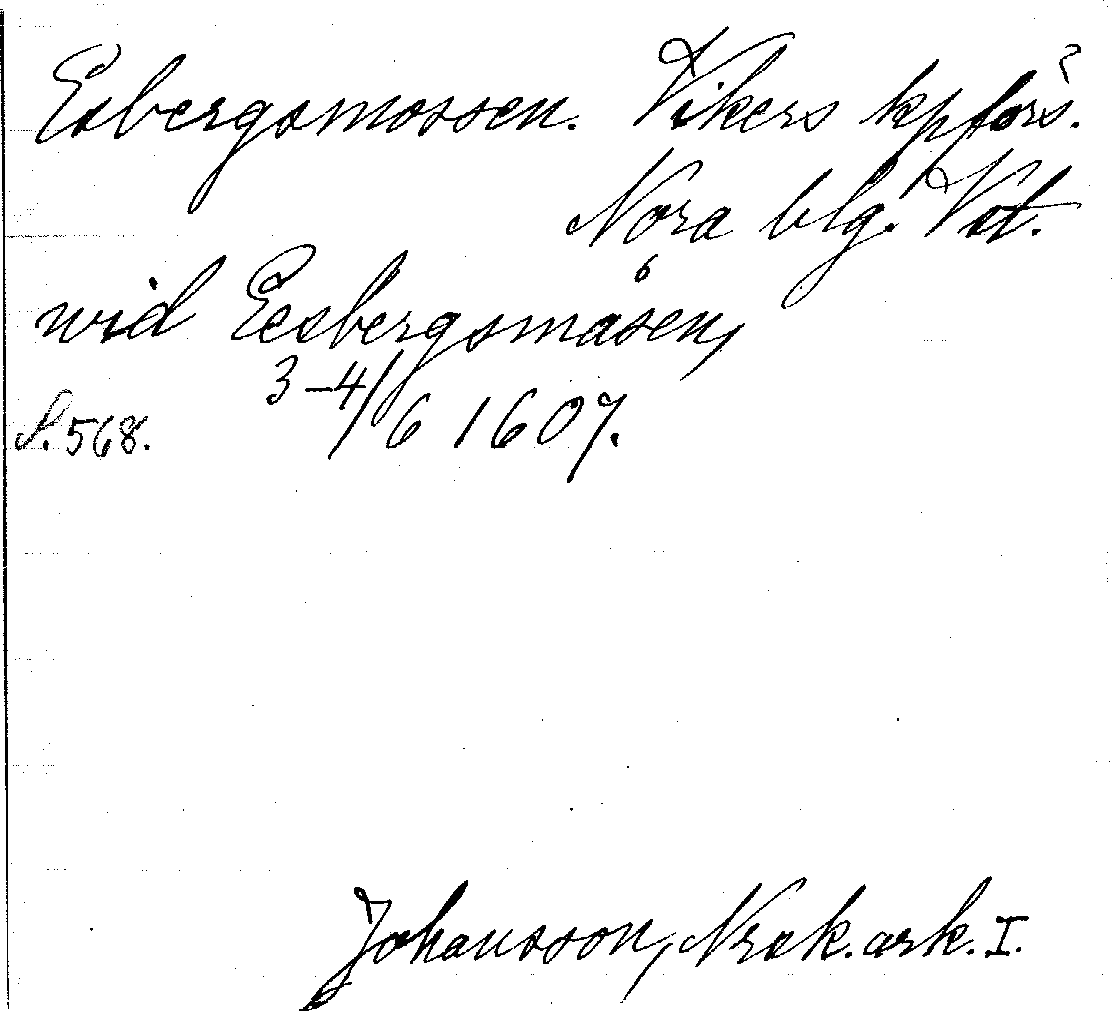 Esbergsmossen. Vikers kpförs.?
Nora blg. Vst.
wid Eesbergsmåsen,
S. 568. 3-4/6 1607.
Johansson, Nrsk. ark. I.